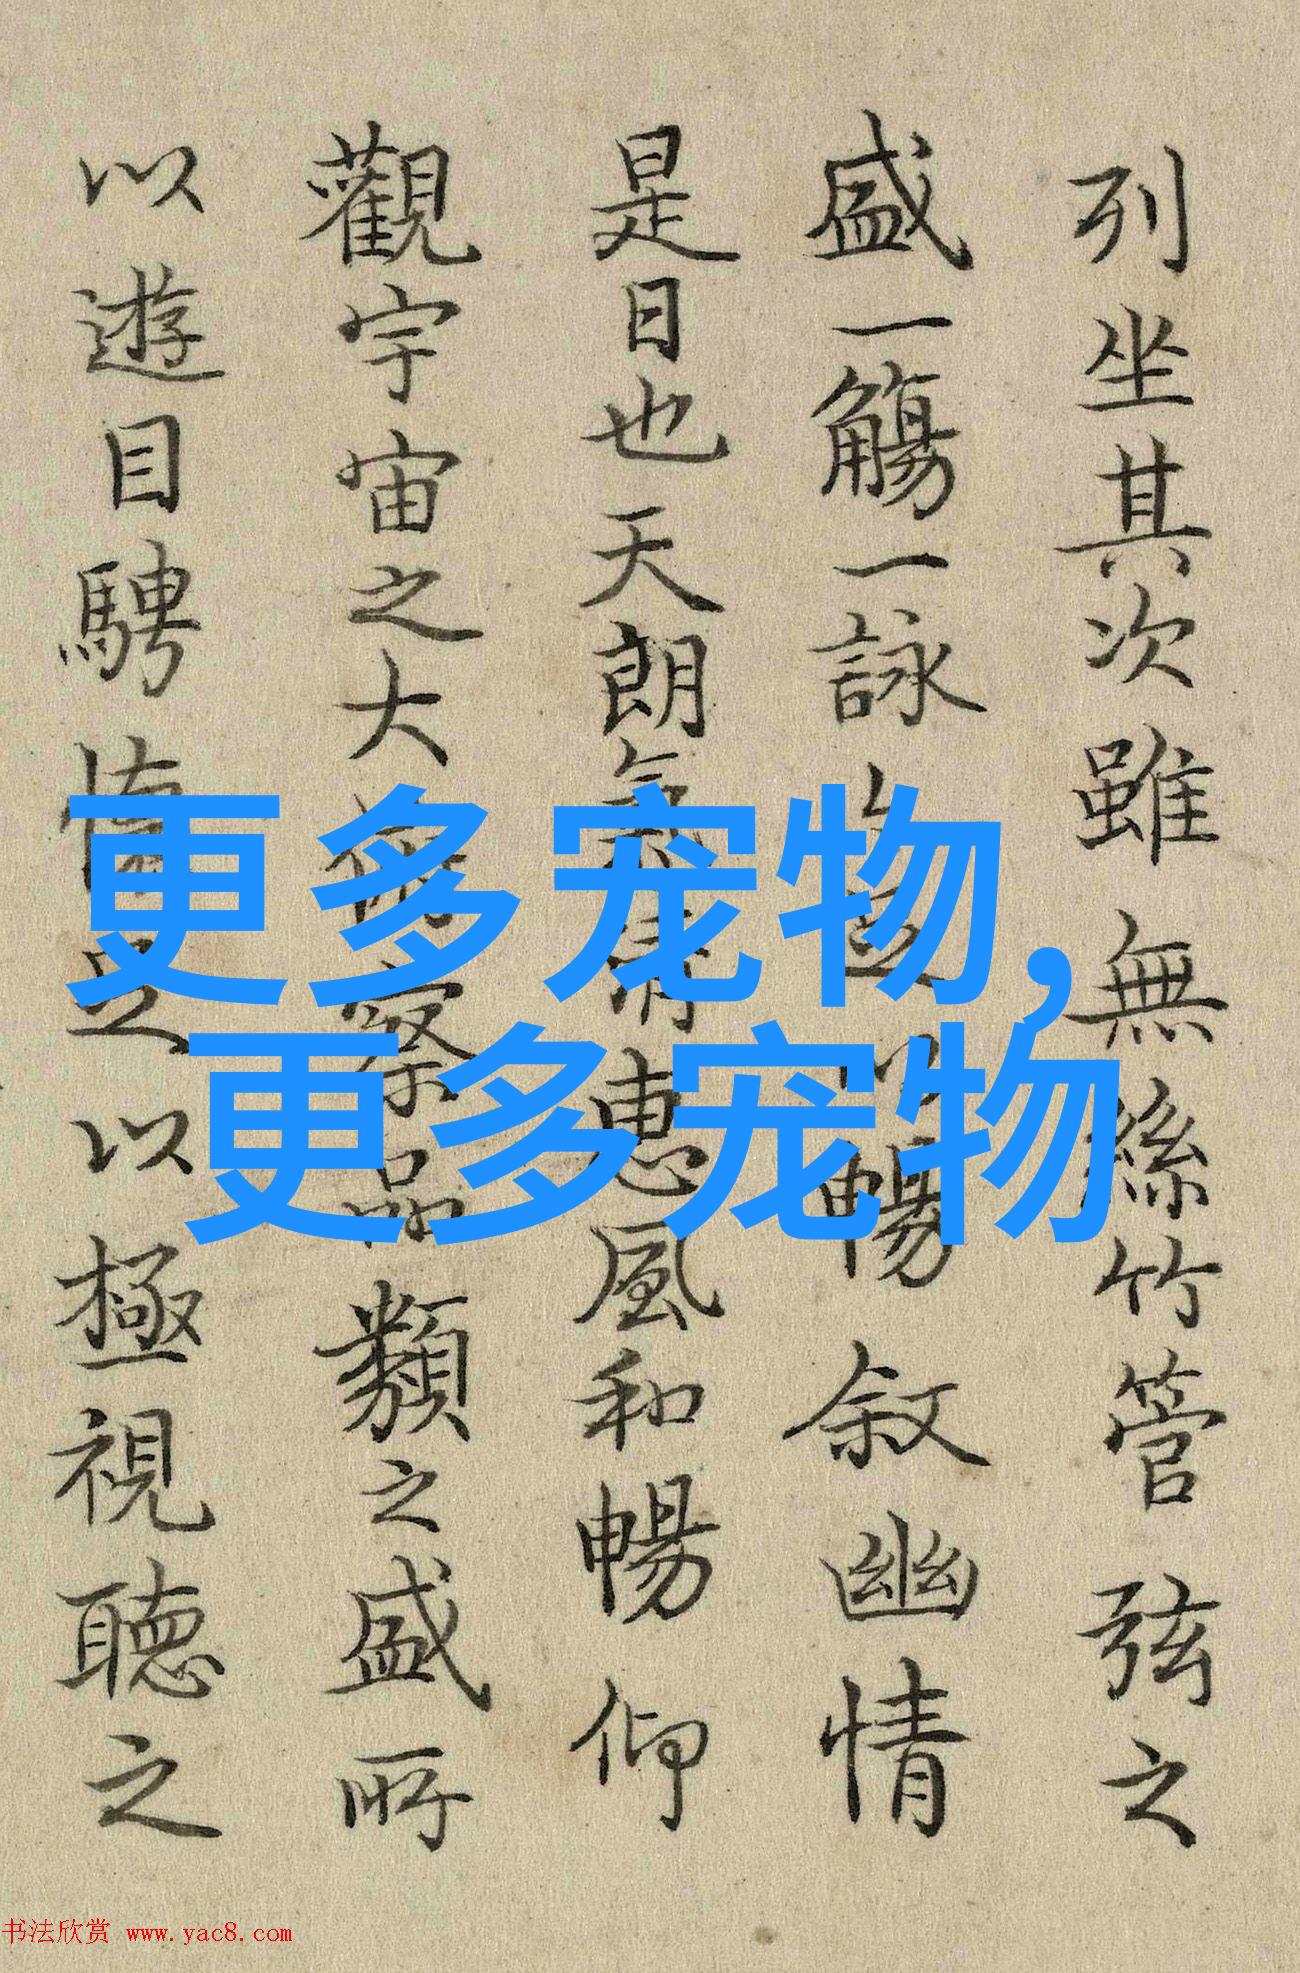 列坐其次雖無絲竹管弦之
盛一觴一詠亦足以暢叙幽情
是日也天朗氣清恵風和暢仰
觀宇宙之大俯察品類之盛所
以遊目騁懷足以極視聽之
更多宠物,
更多宠物
书法欣赏 www.yac8.com